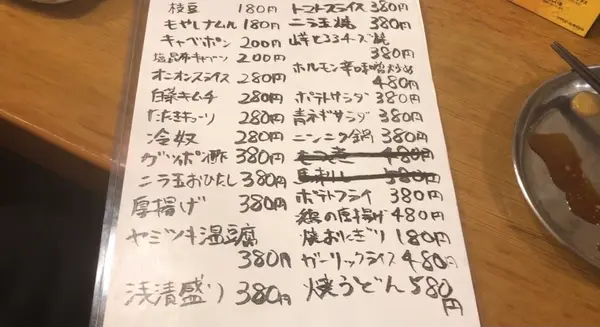 枝豆 180円
もやしナムル 180円
キャベポン 200円
塩昆布キャベツ 200円
オニオンスライス 280円
白菜キムチ 280円
たたきキューリ 280円
冷奴 280円
ガツポン酢 380円
ニラ玉おひたし 380円
厚揚げ 380円
ヤミツキ温腐
380円
浅清盛り 380円
トマトスライス 380円
ニラ玉焼 380円
チーズ焼
380円
ホルモン辛味噌炒め
480円
ポテトサラダ 380円
青ネギサラダ 380円
ニンニク鍋 380円
480円
馬刺し 580円
ポテトフライ 380円
の厚揚げ 480円
焼おにぎり 180円
ガーリックライス 480円
焼うどん 580円